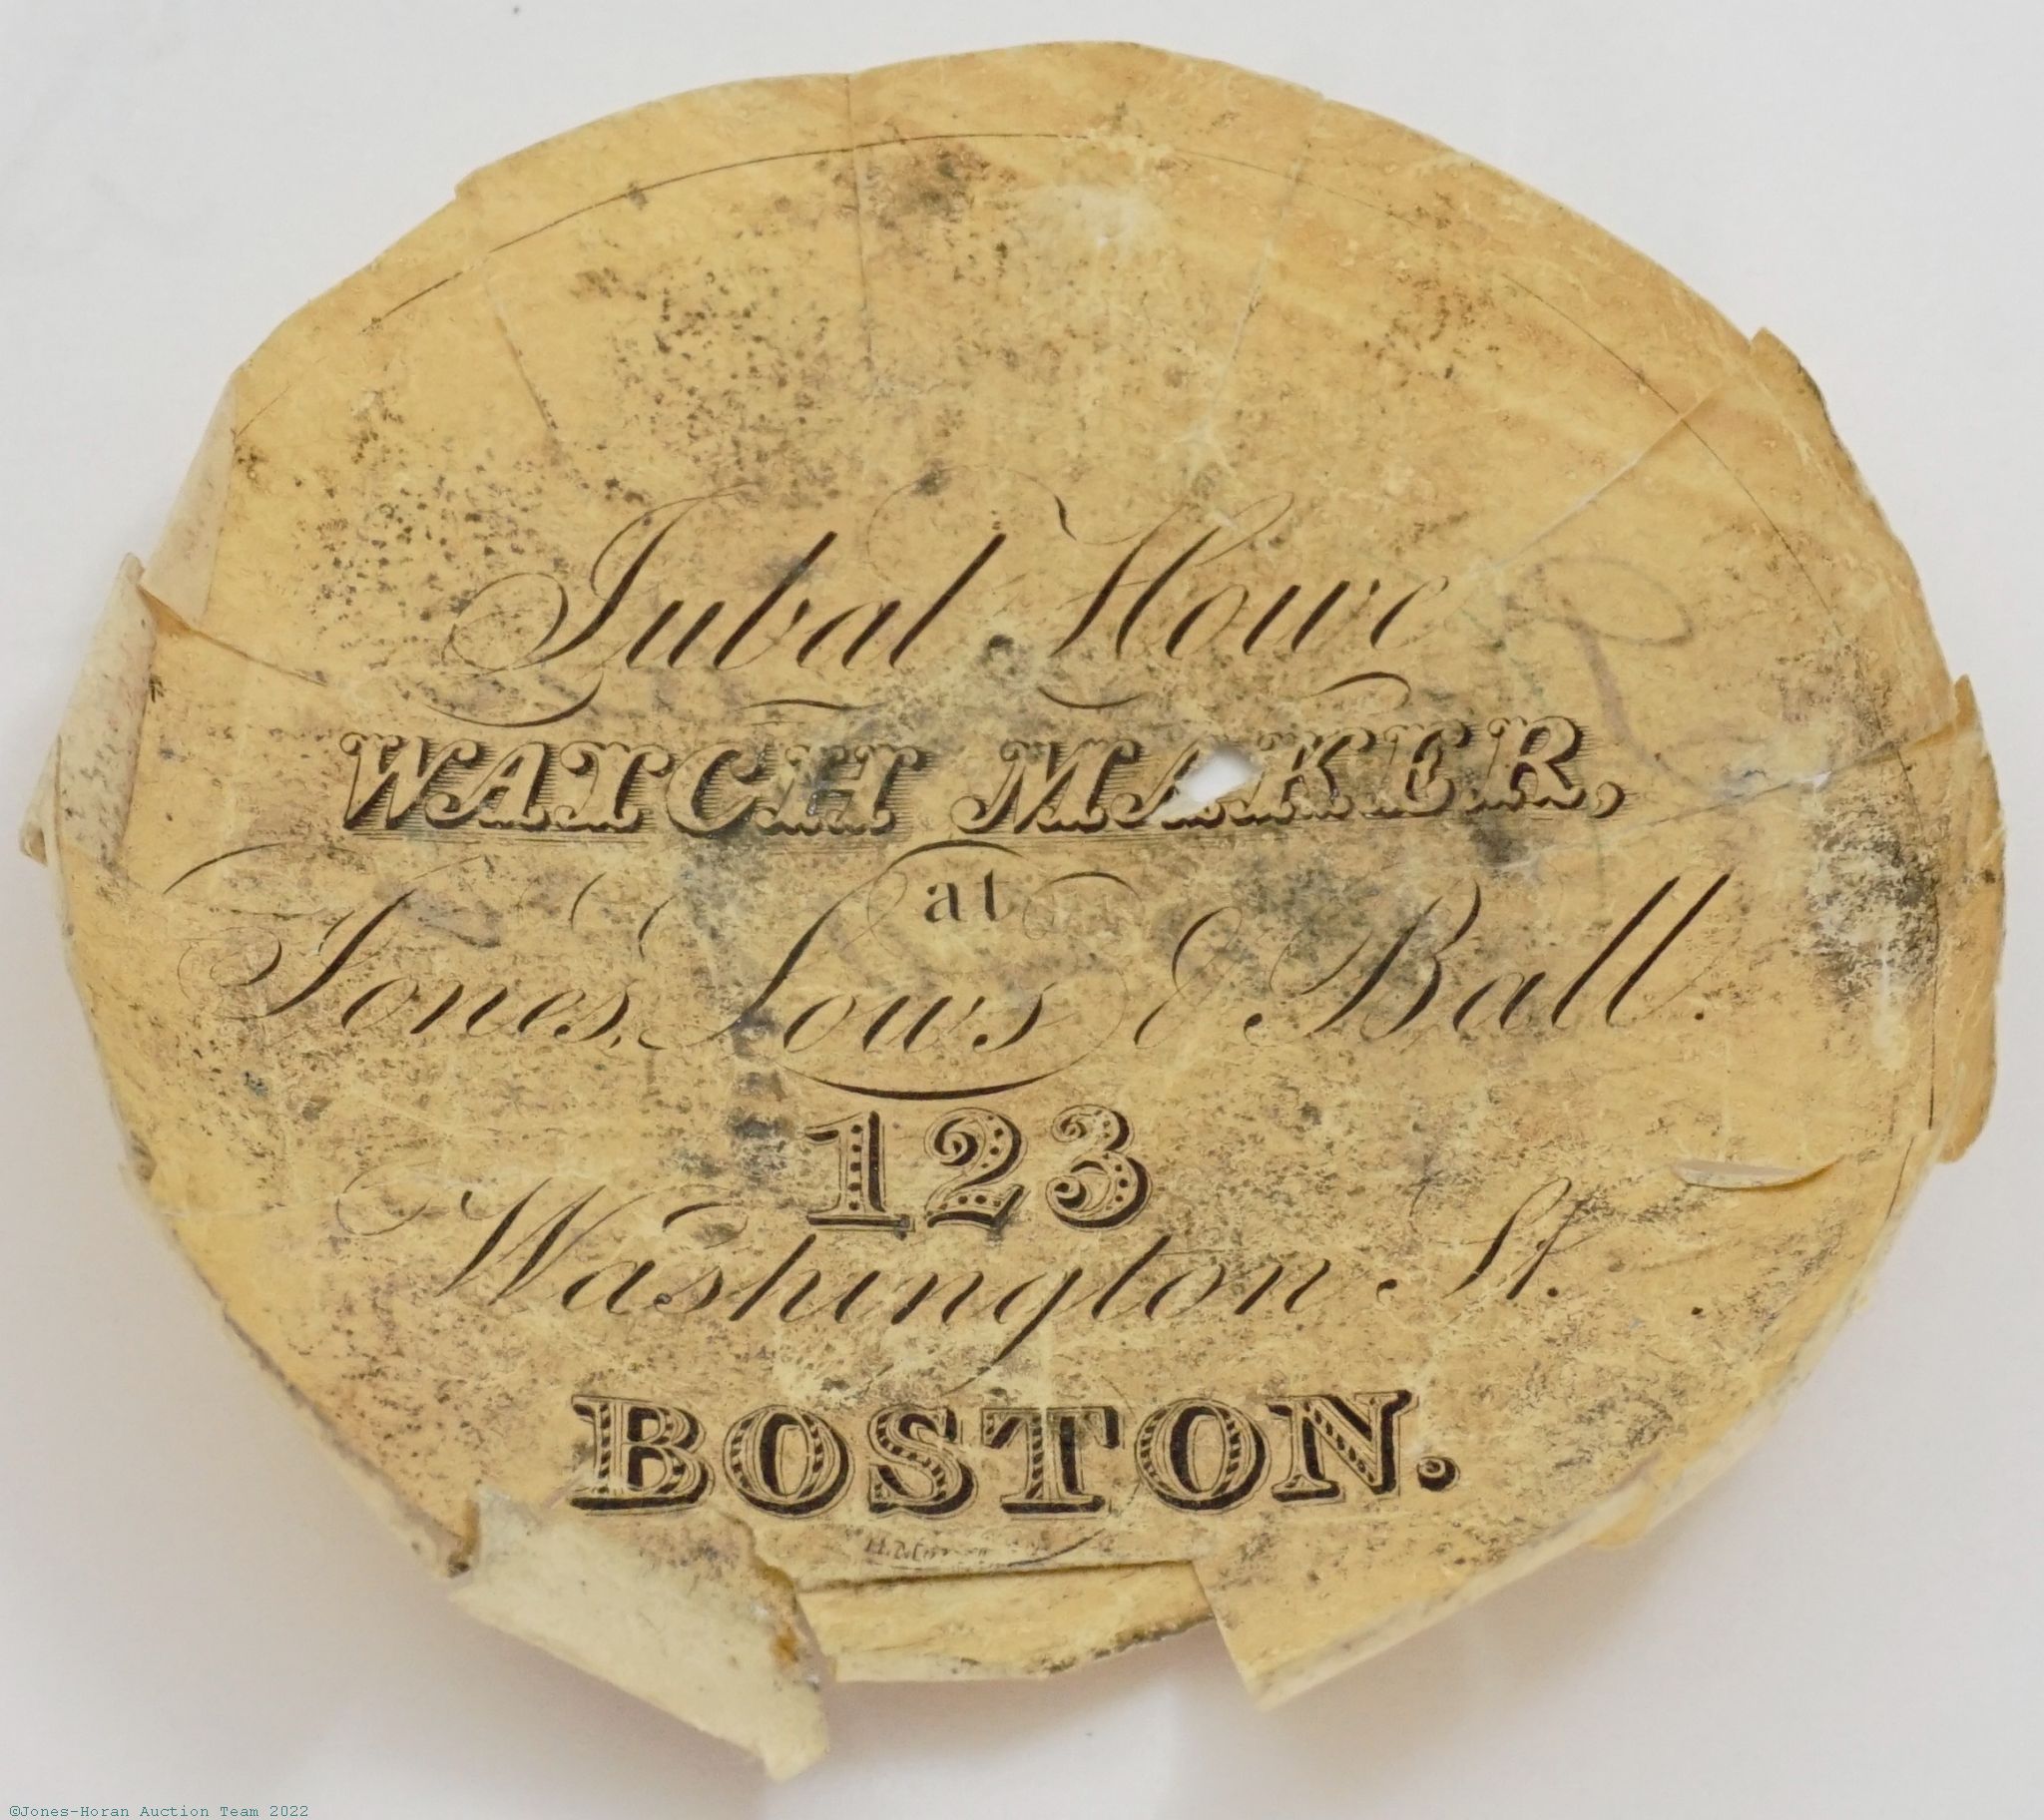 Jubal Howe
WATCH MAKER,
at
Jones, Lows & Ball.
123
Washington St.
BOSTON.
©Jones-Horan Auction Team 2022